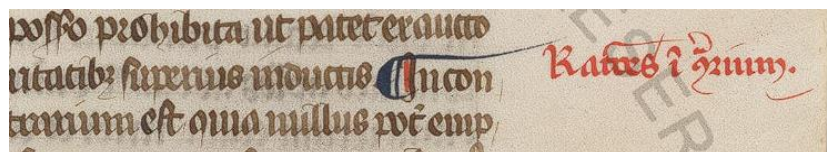 posso prohibita ut patet ex aucto
ritatibꝫ superius inductis In con
trarium est quia nullus pōt emp
Ratōes ī ꝯ̄rium.